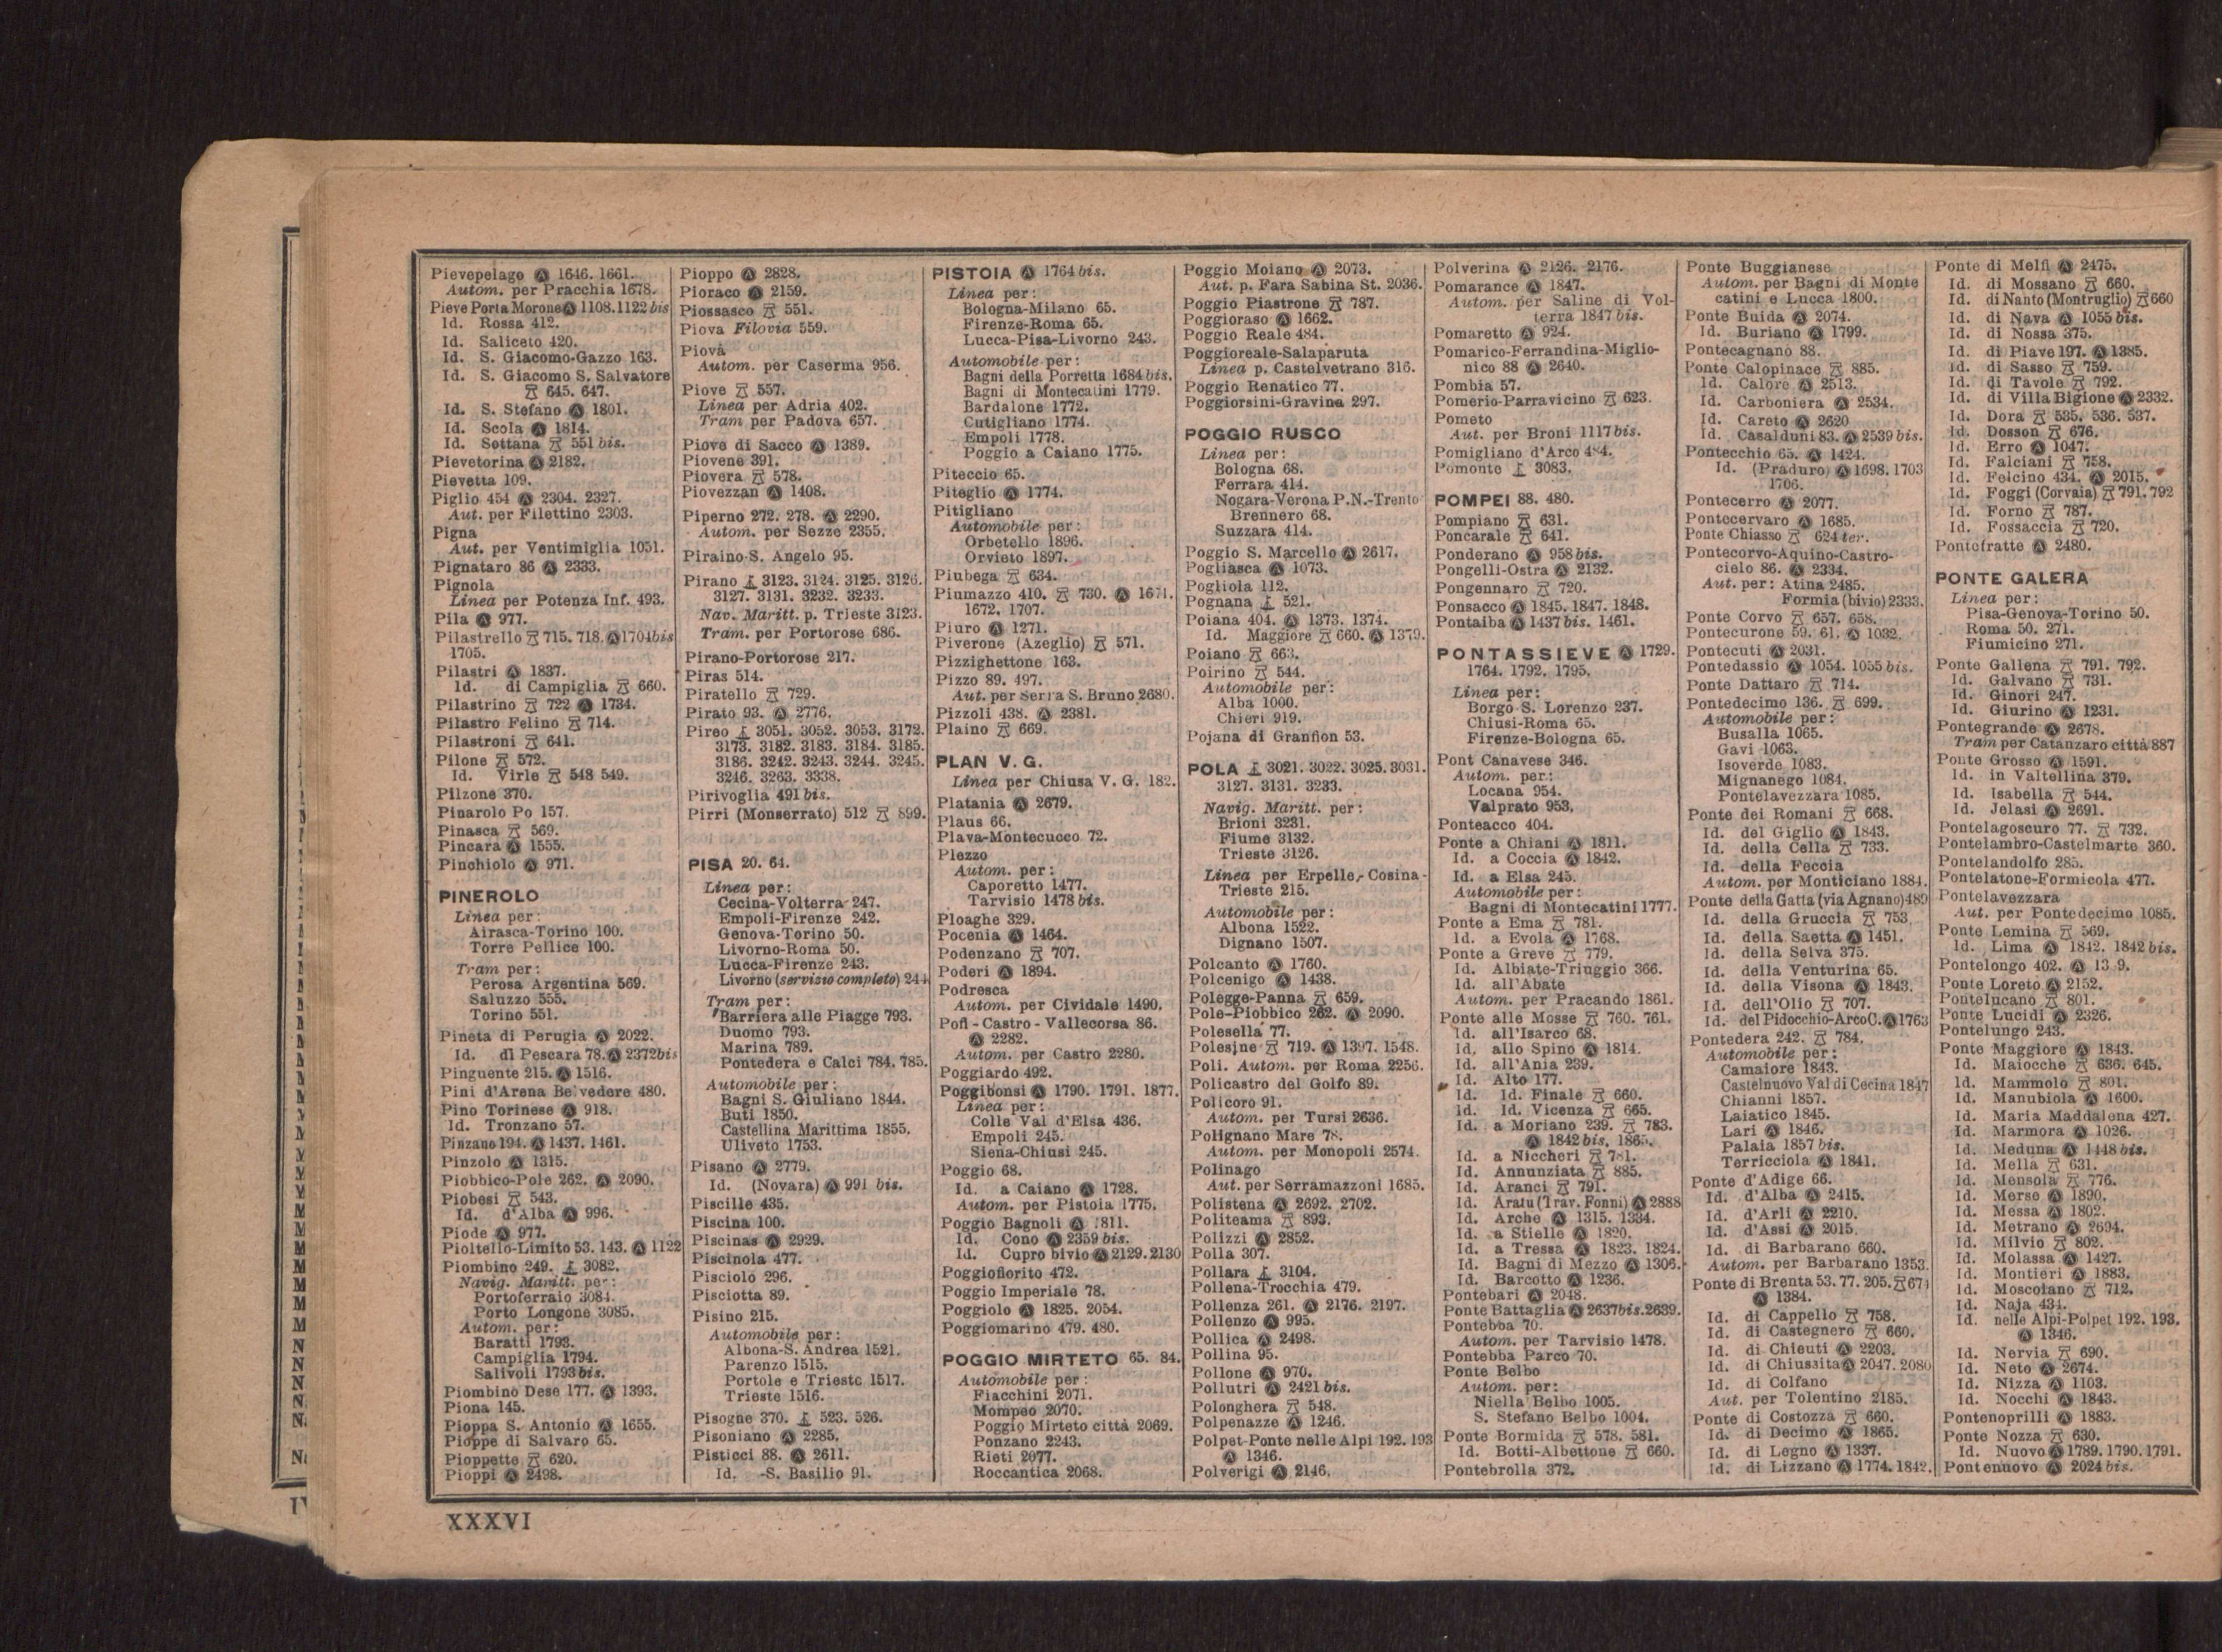 Pievepelago Ⓐ 1646. 1661.
Autom. per Pracchia 1678.
Pieve Porta Morone Ⓐ 1108. 1122 bis
Id. Rossa 412.
Id. Saliceto 420.
Id. S. Giacomo-Gazzo 163.
Id. S. Giacomo S. Salvatore
645. 647.
Id. S. Stefano Ⓐ 1801.
Id. Scola Ⓐ 1814.
Id. Sottana 551 bis.
Pievetorina Ⓐ 2182.
Pievetta 109.
Piglio 454 Ⓐ 2304. 2327.
Aut. per Filettino 2303.
Pigna
Aut. per Ventimiglia 1051.
Pignataro 86 Ⓐ 2333.
Pignola
Linea per Potenza Inf. 493.
Pila Ⓐ 977.
Pilastrello 715. 718. Ⓐ 1704 bis
1705.
Pilastri Ⓐ 1837.
Id. di Campiglia 660.
Pilastrino 722 Ⓐ 1734.
Pilastro Felino 714.
Pilastroni 641.
Pilone 572.
Id. Virle 548 549.
Pilzone 370.
Pinarolo Po 157.
Pinasca 569.
Pincara Ⓐ 1555.
Pinchiolo Ⓐ 971.
PINEROLO
Linea per:
Airasca-Torino 100.
Torre Pellice 100.
Tram per:
Perosa Argentina 569.
Saluzzo 555.
Torino 551.
Pineta di Perugia Ⓐ 2022.
Id. di Pescara 78. Ⓐ 2372 bis
Pinguente 215. Ⓐ 1516.
Pini d'Arena Belvedere 480.
Pino Torinese Ⓐ 918.
Id. Tronzano 57.
Pinzano 194. Ⓐ 1437. 1461.
Pinzolo Ⓐ 1315.
Piobbico-Pole 262. Ⓐ 2090.
Piobesi 543.
Id. d'Alba Ⓐ 996.
Piode Ⓐ 977.
Pioltello-Limito 53. 143. Ⓐ 1122
Piombino 249. 3082.
Navig. Maritt. per:
Portoferraio 3084.
Porto Longone 3085.
Autom. per:
Baratti 1793.
Campiglia 1794.
Salivoli 1793 bis.
Piombino Dese 177. Ⓐ 1393.
Piona 145.
Pioppa S. Antonio Ⓐ 1655.
Pioppe di Salvaro 65.
Pioppette 620.
Pioppi Ⓐ 2498.
Pioppo Ⓐ 2828.
Pioraco Ⓐ 2159.
Piossasco 551.
Piova Filovia 559.
Piovà
Autom. per Caserma 956.
Piove 557.
Linea per Adria 402.
Tram per Padova 657.
Piove di Sacco Ⓐ 1389.
Piovene 391.
Piovera 578.
Piovezzan Ⓐ 1408.
Piperno 272. 278. Ⓐ 2290.
Autom. per Sezze 2355.
Piraino-S. Angelo 95.
Pirano 3123. 3124. 3125. 3126.
3127. 3131. 3232. 3233.
Nav. Maritt. p. Trieste 3123.
Tram. per Portorose 686.
Pirano-Portorose 217.
Piras 514.
Piratello 729.
Pirato 93. Ⓐ 2776.
Pireo 3051. 3052. 3053. 3172.
3173. 3182. 3183. 3184. 3185.
3186. 3242. 3243. 3244. 3245.
3246. 3263. 3338.
Pirivoglia 491 bis.
Pirri (Monserrato) 512 899.
PISA 20. 64.
Linea per:
Cecina-Volterra 247.
Empoli-Firenze 242.
Genova-Torino 50.
Livorno-Roma 50.
Lucca-Firenze 243.
Livorno (servizio completo) 244
Tram per:
Barriera alle Piagge 793.
Duomo 793.
Marina 789.
Pontedera e Calci 784. 785.
Automobile per:
Bagni S. Giuliano 1844.
Buti 1850.
Castellina Marittima 1855.
Uliveto 1753.
Pisano Ⓐ 2779.
Id. (Novara) Ⓐ 991 bis.
Piscille 435.
Piscina 100.
Piscinas Ⓐ 2929.
Piscinola 477.
Pisciolo 296.
Pisciotta 89.
Pisino 215.
Automobile per:
Albona-S. Andrea 1521.
Parenzo 1515.
Portole e Trieste 1517.
Trieste 1516.
Pisogne 370. 523. 526.
Pisoniano Ⓐ 2285.
Pisticci 88. Ⓐ 2611.
Id. -S. Basilio 91.
PISTOIA Ⓐ 1764 bis.
Linea per:
Bologna-Milano 65.
Firenze-Roma 65.
Lucca-Pisa-Livorno 243.
Automobile per:
Bagni della Porretta 1684 bis.
Bagni di Montecatini 1779.
Bardalone 1772.
Cutigliano 1774.
Empoli 1778.
Poggio a Caiano 1775.
Piteccio 65.
Piteglio Ⓐ 1774.
Pitigliano
Automobile per:
Orbetello 1896.
Orvieto 1897.
Piubega 634.
Piumazzo 410. 730. Ⓐ 1671.
1672. 1707.
Piuro Ⓐ 1271.
Piverone (Azeglio) 571.
Pizzighettone 163.
Pizzo 89. 497.
Aut. per Serra S. Bruno 2680.
Pizzoli 438. Ⓐ 2381.
Plaino 669.
PLAN V. G.
Linea per Chiusa V. G. 182.
Platania Ⓐ 2679.
Plaus 66.
Plava-Montecucco 72.
Plezzo
Autom. per:
Caporetto 1477.
Tarvisio 1478 bis.
Ploaghe 329.
Pocenia Ⓐ 1464.
Podenzano 707.
Poderi Ⓐ 1894.
Podresca
Autom. per Cividale 1490.
Pofi - Castro - Vallecorsa 86.
Ⓐ 2282.
Autom. per Castro 2280.
Poggiardo 492.
Poggibonsi Ⓐ 1790. 1791. 1877.
Linea per:
Colle Val d'Elsa 436.
Empoli 245.
Siena-Chiusi 245.
Poggio 68.
Id. a Caiano Ⓐ 1728.
Autom. per Pistoia 1775.
Poggio Bagnoli Ⓐ 1811.
Id. Cono Ⓐ 2359 bis.
Id. Cupro bivio Ⓐ 2129. 2130
Poggiofiorito 472.
Poggio Imperiale 78.
Poggiolo Ⓐ 1825. 2054.
Poggiomarino 479. 480.
POGGIO MIRTETO 65. 84.
Automobile per:
Fiacchini 2071.
Mompeo 2070.
Poggio Mirteto città 2069.
Ponzano 2243.
Rieti 2077.
Roccantica 2068.
Poggio Moiano Ⓐ 2073.
Aut. p. Fara Sabina St. 2036.
Poggio Piastrone 787.
Poggioraso Ⓐ 1662.
Poggio Reale 484.
Poggioreale-Salaparuta
Linea p. Castelvetrano 316.
Poggio Renatico 77.
Poggiorsini-Gravina 297.
POGGIO RUSCO
Linea per:
Bologna 68.
Ferrara 414.
Nogara-Verona P.N.-Trento
Brennero 68.
Suzzara 414.
Poggio S. Marcello Ⓐ 2617.
Pogliasca Ⓐ 1073.
Pogliola 112.
Pognana 521.
Poiana 404. Ⓐ 1373. 1374.
Id. Maggiore 660. Ⓐ 1379.
Poiano 663.
Poirino 544.
Automobile per:
Alba 1000.
Chieri 919.
Pojana di Granfion 53.
POLA 3021. 3022. 3025. 3031.
3127. 3131. 3233.
Navig. Maritt. per:
Brioni 3231.
Fiume 3132.
Trieste 3126.
Linea per Erpelle-Cosina-
Trieste 215.
Automobile per:
Albona 1522.
Dignano 1507.
Polcanto Ⓐ 1760.
Polcenigo Ⓐ 1438.
Polegge-Panna 659.
Pole-Piobbico 262. Ⓐ 2090.
Polesella 77.
Polesine 719. Ⓐ 1397. 1548.
Poli. Autom. per Roma 2256.
Policastro del Golfo 89.
Policoro 91.
Autom. per Tursi 2636.
Polignano Mare 78.
Autom. per Monopoli 2574.
Polinago
Aut. per Serramazzoni 1685.
Polistena Ⓐ 2692. 2702.
Politeama 893.
Polizzi Ⓐ 2852.
Polla 307.
Pollara 3104.
Pollena-Trocchia 479.
Pollenza 261. Ⓐ 2176. 2197.
Pollenzo Ⓐ 995.
Pollica Ⓐ 2498.
Pollina 95.
Pollone Ⓐ 970.
Pollutri Ⓐ 2421 bis.
Polonghera 548.
Polpenazze Ⓐ 1246.
Polpet-Ponte nelle Alpi 192. 193
Ⓐ 1346.
Polverigi Ⓐ 2146.
Polverina Ⓐ 2126. 2176.
Pomarance Ⓐ 1847.
Autom. per Saline di Vol-
terra 1847 bis.
Pomaretto Ⓐ 924.
Pomarico-Ferrandina-Miglio-
nico 88 Ⓐ 2640.
Pombia 57.
Pomerio-Parravicino 623.
Pometo
Aut. per Broni 1117 bis.
Pomigliano d'Arco 484.
Pomonte 3083.
POMPEI 88. 480.
Pompiano 631.
Poncarale 641.
Ponderano Ⓐ 958 bis.
Pongelli-Ostra Ⓐ 2132.
Pongennaro 720.
Ponsacco Ⓐ 1845. 1847. 1848.
Pontaiba Ⓐ 1437 bis. 1461.
PONTASSIEVE Ⓐ 1729.
1764. 1792. 1795.
Linea per:
Borgo S. Lorenzo 237.
Chiusi-Roma 65.
Firenze-Bologna 65.
Pont Canavese 346.
Autom. per:
Locana 954.
Valprato 953.
Ponteacco 404.
Ponte a Chiani Ⓐ 1811.
Id. a Coccia Ⓐ 1842.
Id. a Elsa 245.
Automobile per:
Bagni di Montecatini 1777.
Ponte a Ema 781.
Id. a Evola Ⓐ 1768.
Ponte a Greve 779.
Id. Albiate-Triuggio 366.
Id. all'Abate
Autom. per Pracando 1861.
Ponte alle Mosse 760. 761.
Id. all'Isarco 68.
Id. allo Spino Ⓐ 1814.
Id. all'Ania 239.
Id. Alto 177.
Id. Id. Finale 660.
Id. Id. Vicenza 665.
Id. a Moriano 239. 783.
Ⓐ 1842 bis, 1865.
Id. a Niccheri 781.
Id. Annunziata 885.
Id. Aranci 791.
Id. Aratu (Trav. Fonni) Ⓐ 2888
Id. Arche Ⓐ 1315. 1334.
Id. a Stielle Ⓐ 1820.
Id. a Tressa Ⓐ 1823. 1824.
Id. Bagni di Mezzo Ⓐ 1306.
Id. Barcotto Ⓐ 1236.
Pontebari Ⓐ 2048.
Ponte Battaglia Ⓐ 2637 bis. 2639.
Pontebba 70.
Autom. per Tarvisio 1478.
Pontebba Parco 70.
Ponte Belbo
Autom. per:
Niella Belbo 1005.
S. Stefano Belbo 1004.
Ponte Bormida 578. 581.
Id. Botti-Albettone 660.
Pontebrolla 372.
Ponte Buggianese
Autom. per Bagni di Monte
catini e Lucca 1800.
Ponte Buida Ⓐ 2074.
Id. Buriano Ⓐ 1799.
Pontecagnano 88.
Ponte Calopinace 885.
Id. Calore Ⓐ 2513.
Id. Carboniera Ⓐ 2534.
Id. Careto Ⓐ 2620
Id. Casalduni 83. Ⓐ 2539 bis.
Pontecchio 65. Ⓐ 1424.
Id. (Praduro) Ⓐ 1698. 1703
1706.
Pontecerro Ⓐ 2077.
Pontecervaro Ⓐ 1685.
Ponte Chiasso 624 ter.
Pontecorvo-Aquino-Castro-
cielo 86. Ⓐ 2334.
Aut. per: Atina 2485.
Formia (bivio) 2333.
Ponte Corvo 657. 658.
Pontecurone 59. 61. Ⓐ 1032.
Pontecuti Ⓐ 2031.
Pontedassio Ⓐ 1054. 1055 bis.
Ponte Dattaro 714.
Pontedecimo 136. 699.
Automobile per:
Busalla 1065.
Gavi 1063.
Isoverde 1083.
Mignanego 1084.
Pontelavezzara 1085.
Ponte dei Romani 668.
Id. del Giglio Ⓐ 1843.
Id. della Cella 733.
Id. della Feccia
Autom. per Monticiano 1884.
Ponte della Gatta (via Agnano) 489
Id. della Gruccia 753.
Id. della Saetta Ⓐ 1451.
Id. della Selva 375.
Id. della Venturina 65.
Id. della Visona Ⓐ 1843.
Id. dell'Olio 707.
Id. del Pidocchio-Arco C. Ⓐ 1763
Pontedera 242. 784.
Automobile per:
Camaiore 1843.
Castelnuovo Val di Cecina 1847
Chianni 1857.
Laiatico 1845.
Lari Ⓐ 1846.
Palaia 1857 bis.
Terricciola Ⓐ 1841.
Ponte d'Adige 66.
Id. d'Alba Ⓐ 2415.
Id. d'Arli Ⓐ 2210.
Id. d'Assi Ⓐ 2015.
Id. di Barbarano 660.
Autom. per Barbarano 1353.
Ponte di Brenta 53. 77. 205. 671
Ⓐ 1384.
Id. di Cappello 758.
Id. di Castegnero 660.
Id. di Chieuti Ⓐ 2203.
Id. di Chiussita Ⓐ 2047. 2080
Id. di Colfano
Aut. per Tolentino 2185.
Ponte di Costozza 660.
Id. di Decimo Ⓐ 1865.
Id. di Legno Ⓐ 1337.
Id. di Lizzano Ⓐ 1774. 1842.
Ponte di Melfi Ⓐ 2475.
Id. di Mossano 660.
Id. di Nanto (Montruglio) 660
Id. di Nava Ⓐ 1055 bis.
Id. di Nossa 375.
Id. di Piave 197. Ⓐ 1385.
Id. di Sasso 759.
Id. di Tavole 792.
Id. di Villa Bigione Ⓐ 2332.
Id. Dora 535. 536. 537.
Id. Dosson 676.
Id. Erro Ⓐ 1047.
Id. Falciani 758.
Id. Felcino 434. Ⓐ 2015.
Id. Foggi (Corvaia) 791. 792
Id. Forno 787.
Id. Fossaccia 720.
Pontefratte Ⓐ 2480.
PONTE GALERA
Linea per:
Pisa-Genova-Torino 50.
Roma 50. 271.
Fiumicino 271.
Ponte Gallena 791. 792.
Id. Galvano 731.
Id. Ginori 247.
Id. Giurino Ⓐ 1231.
Pontegrande Ⓐ 2678.
Tram per Catanzaro città 887
Ponte Grosso Ⓐ 1591.
Id. in Valtellina 379.
Id. Isabella 544.
Id. Jelasi Ⓐ 2691.
Pontelagoscuro 77. 732.
Pontelambro-Castelmarte 360.
Pontelandolfo 285.
Pontelatone-Formicola 477.
Pontelavezzara
Aut. per Pontedecimo 1085.
Ponte Lemina 569.
Id. Lima Ⓐ 1842. 1842 bis.
Pontelongo 402. Ⓐ
Ponte Loreto Ⓐ 2152.
Pontelucano 801.
Ponte Lucidi Ⓐ 2326.
Pontelungo 243.
Ponte Maggiore Ⓐ 1843.
Id. Maiocche 636. 645.
Id. Mammolo 801.
Id. Manubiola Ⓐ 1600.
Id. Maria Maddalena 427.
Id. Marmora Ⓐ 1026.
Id. Meduna Ⓐ 1448 bis.
Id. Mella 631.
Id. Mensola 776.
Id. Merse Ⓐ 1890.
Id. Messa Ⓐ 1802.
Id. Metrano Ⓐ 2694.
Id. Milvio 802.
Id. Molassa Ⓐ 1427.
Id. Montieri Ⓐ 1883.
Id. Moscoiano 712.
Id. Naja 434.
Id. nelle Alpi-Polpet 192. 193.
Ⓐ 1346.
Id. Nervia 690.
Id. Neto Ⓐ 2674.
Id. Nizza Ⓐ 1103.
Id. Nocchi Ⓐ 1843.
Pontenoprilli Ⓐ 1883.
Ponte Nozza 630.
Id. Nuovo Ⓐ 1789. 1790. 1791.
Pontenuovo Ⓐ 2024 bis.
XXXVI